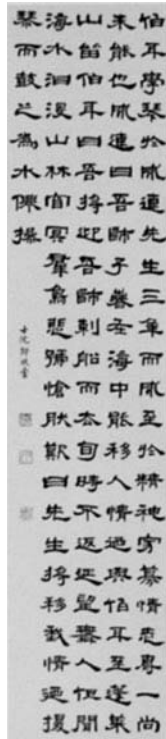 伯牙學琴於成連先生三年而成至於精神寂寞情志專一尚
未能也成連曰吾師子春在海中能移人情迺與伯牙至蓬萊
山留伯牙曰吾將迎吾師刺船而去旬時不返延望無人但聞
海水洄沒山林窅冥羣鳥悲號愴然歎曰先生將移我情迺援
琴而鼓之為水僊操